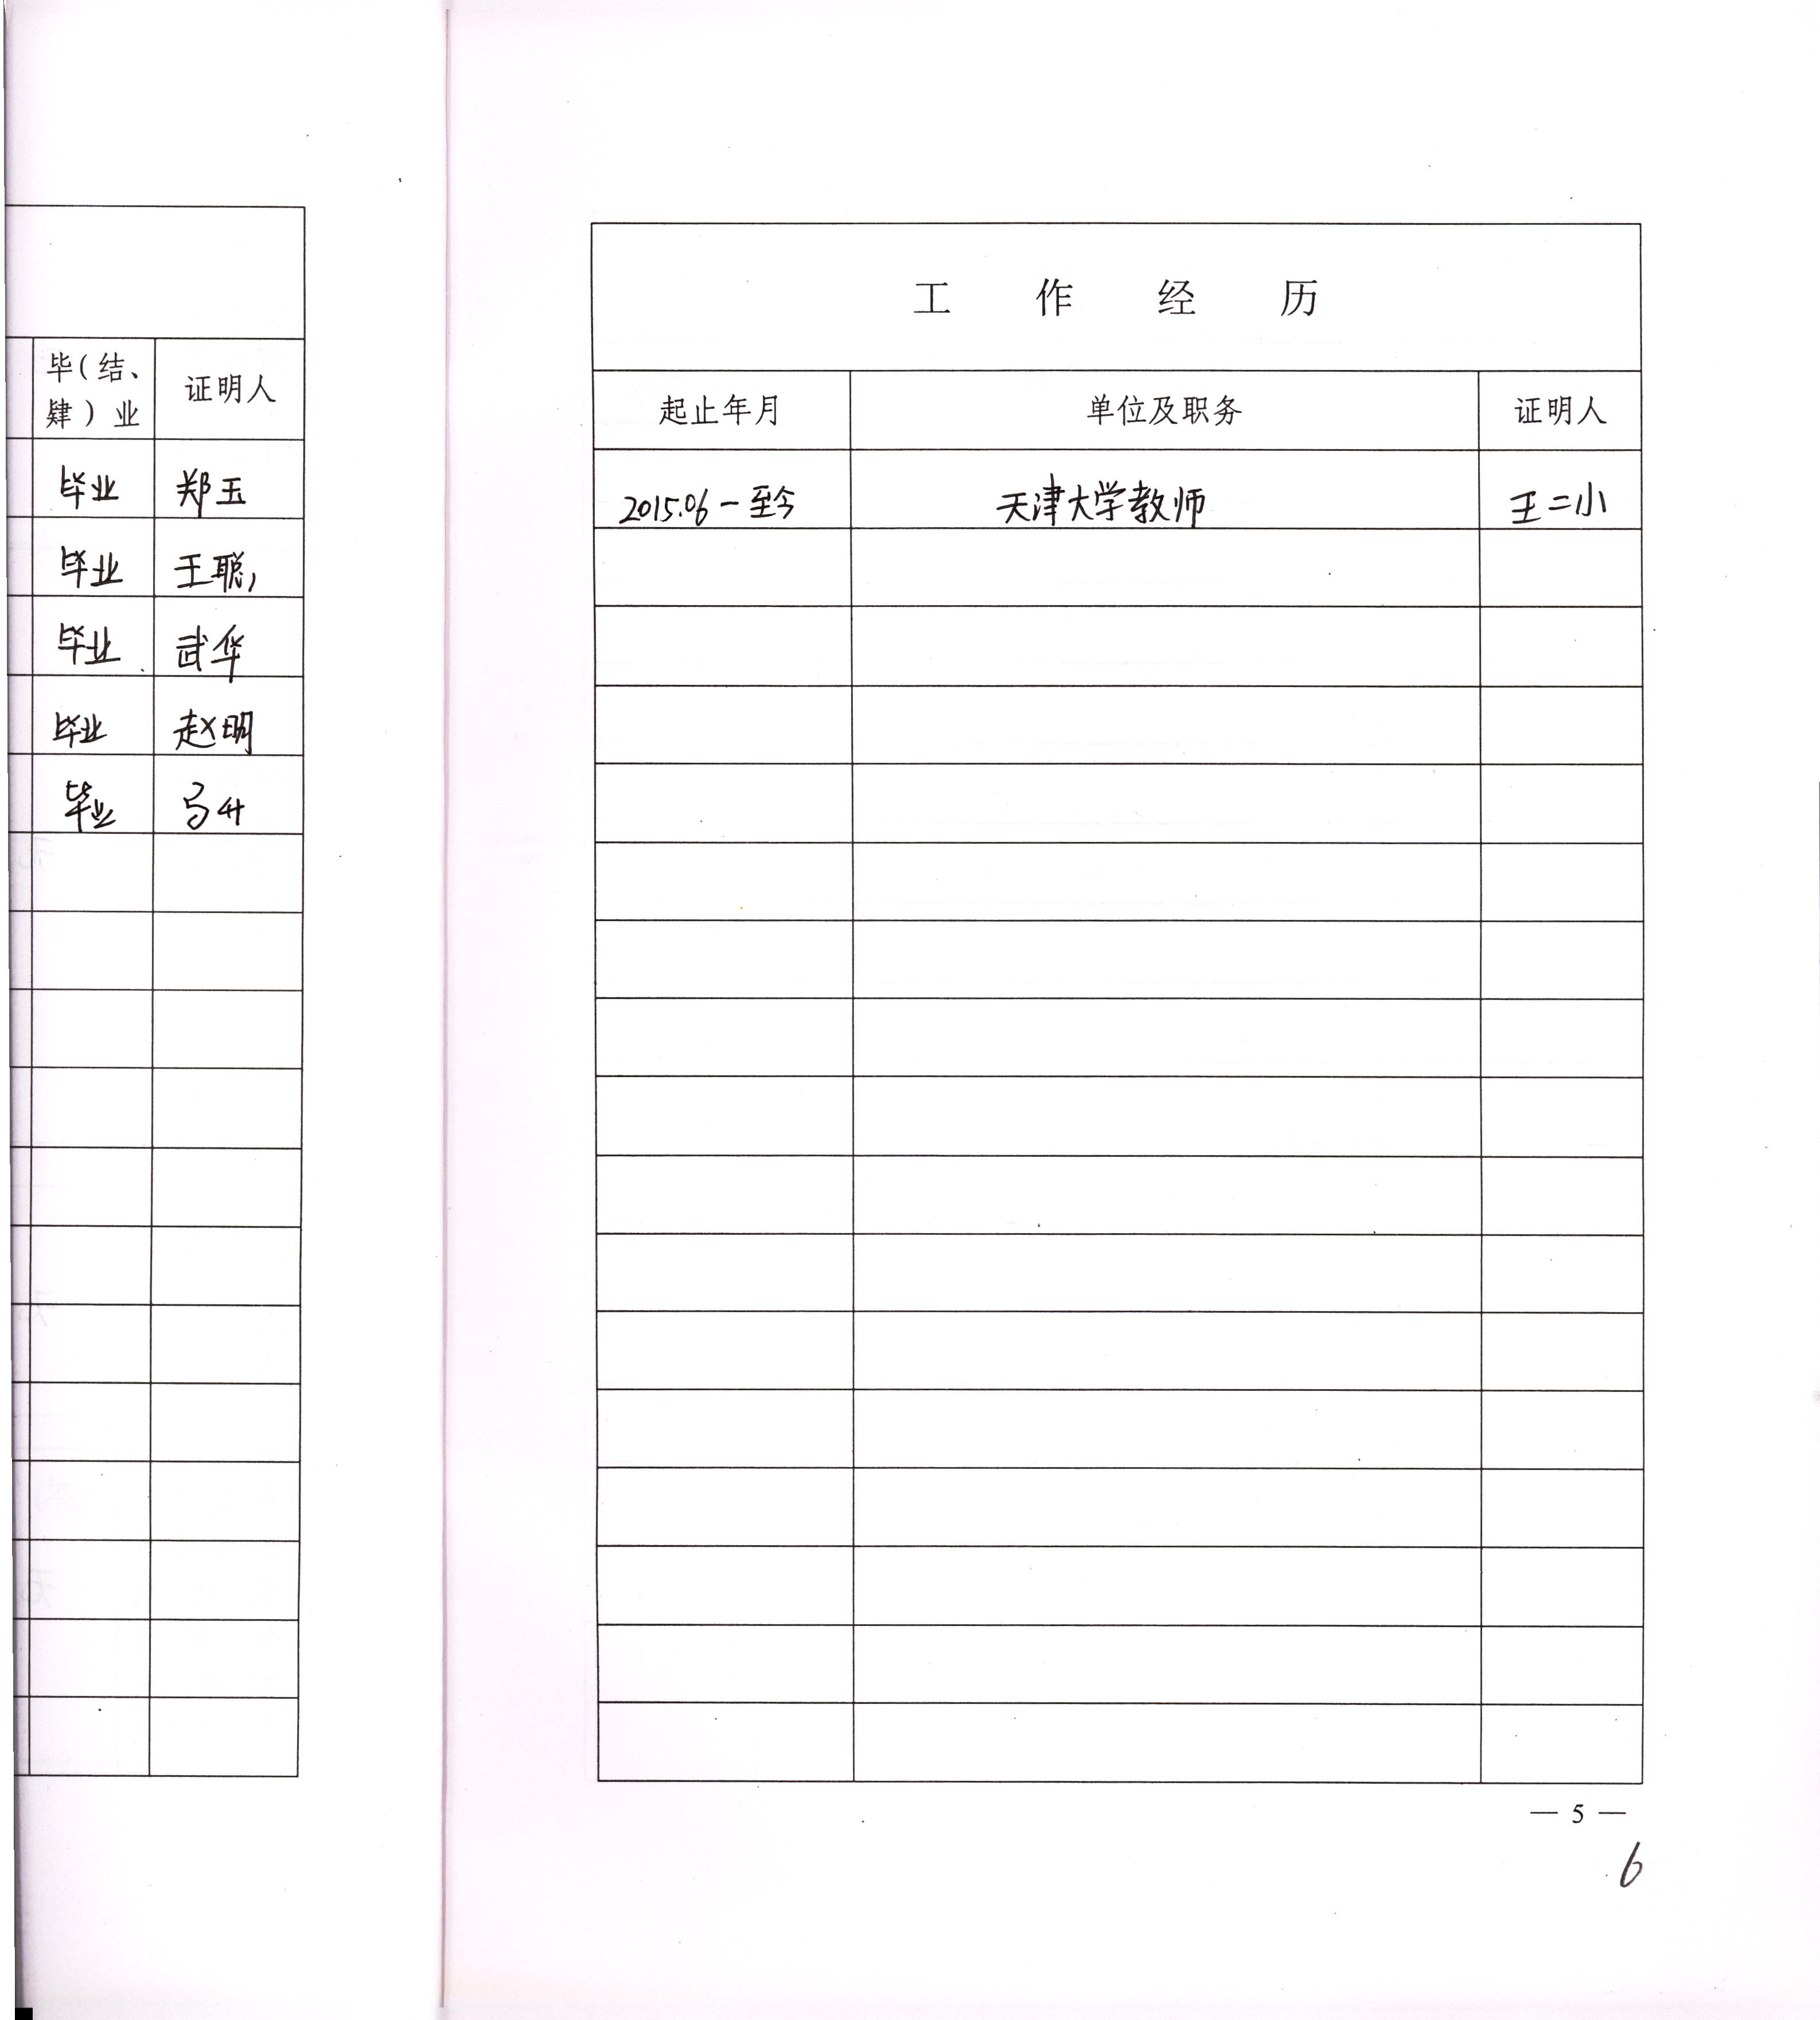 毕（结、
肄）业
证明人
毕业 郑玉
毕业 王聪
毕业 武华
毕业 赵明
毕业 马升
工作经历
起止年月 单位及职务 证明人
2015.06－至今 天津大学教师 王二小
— 5 —
6